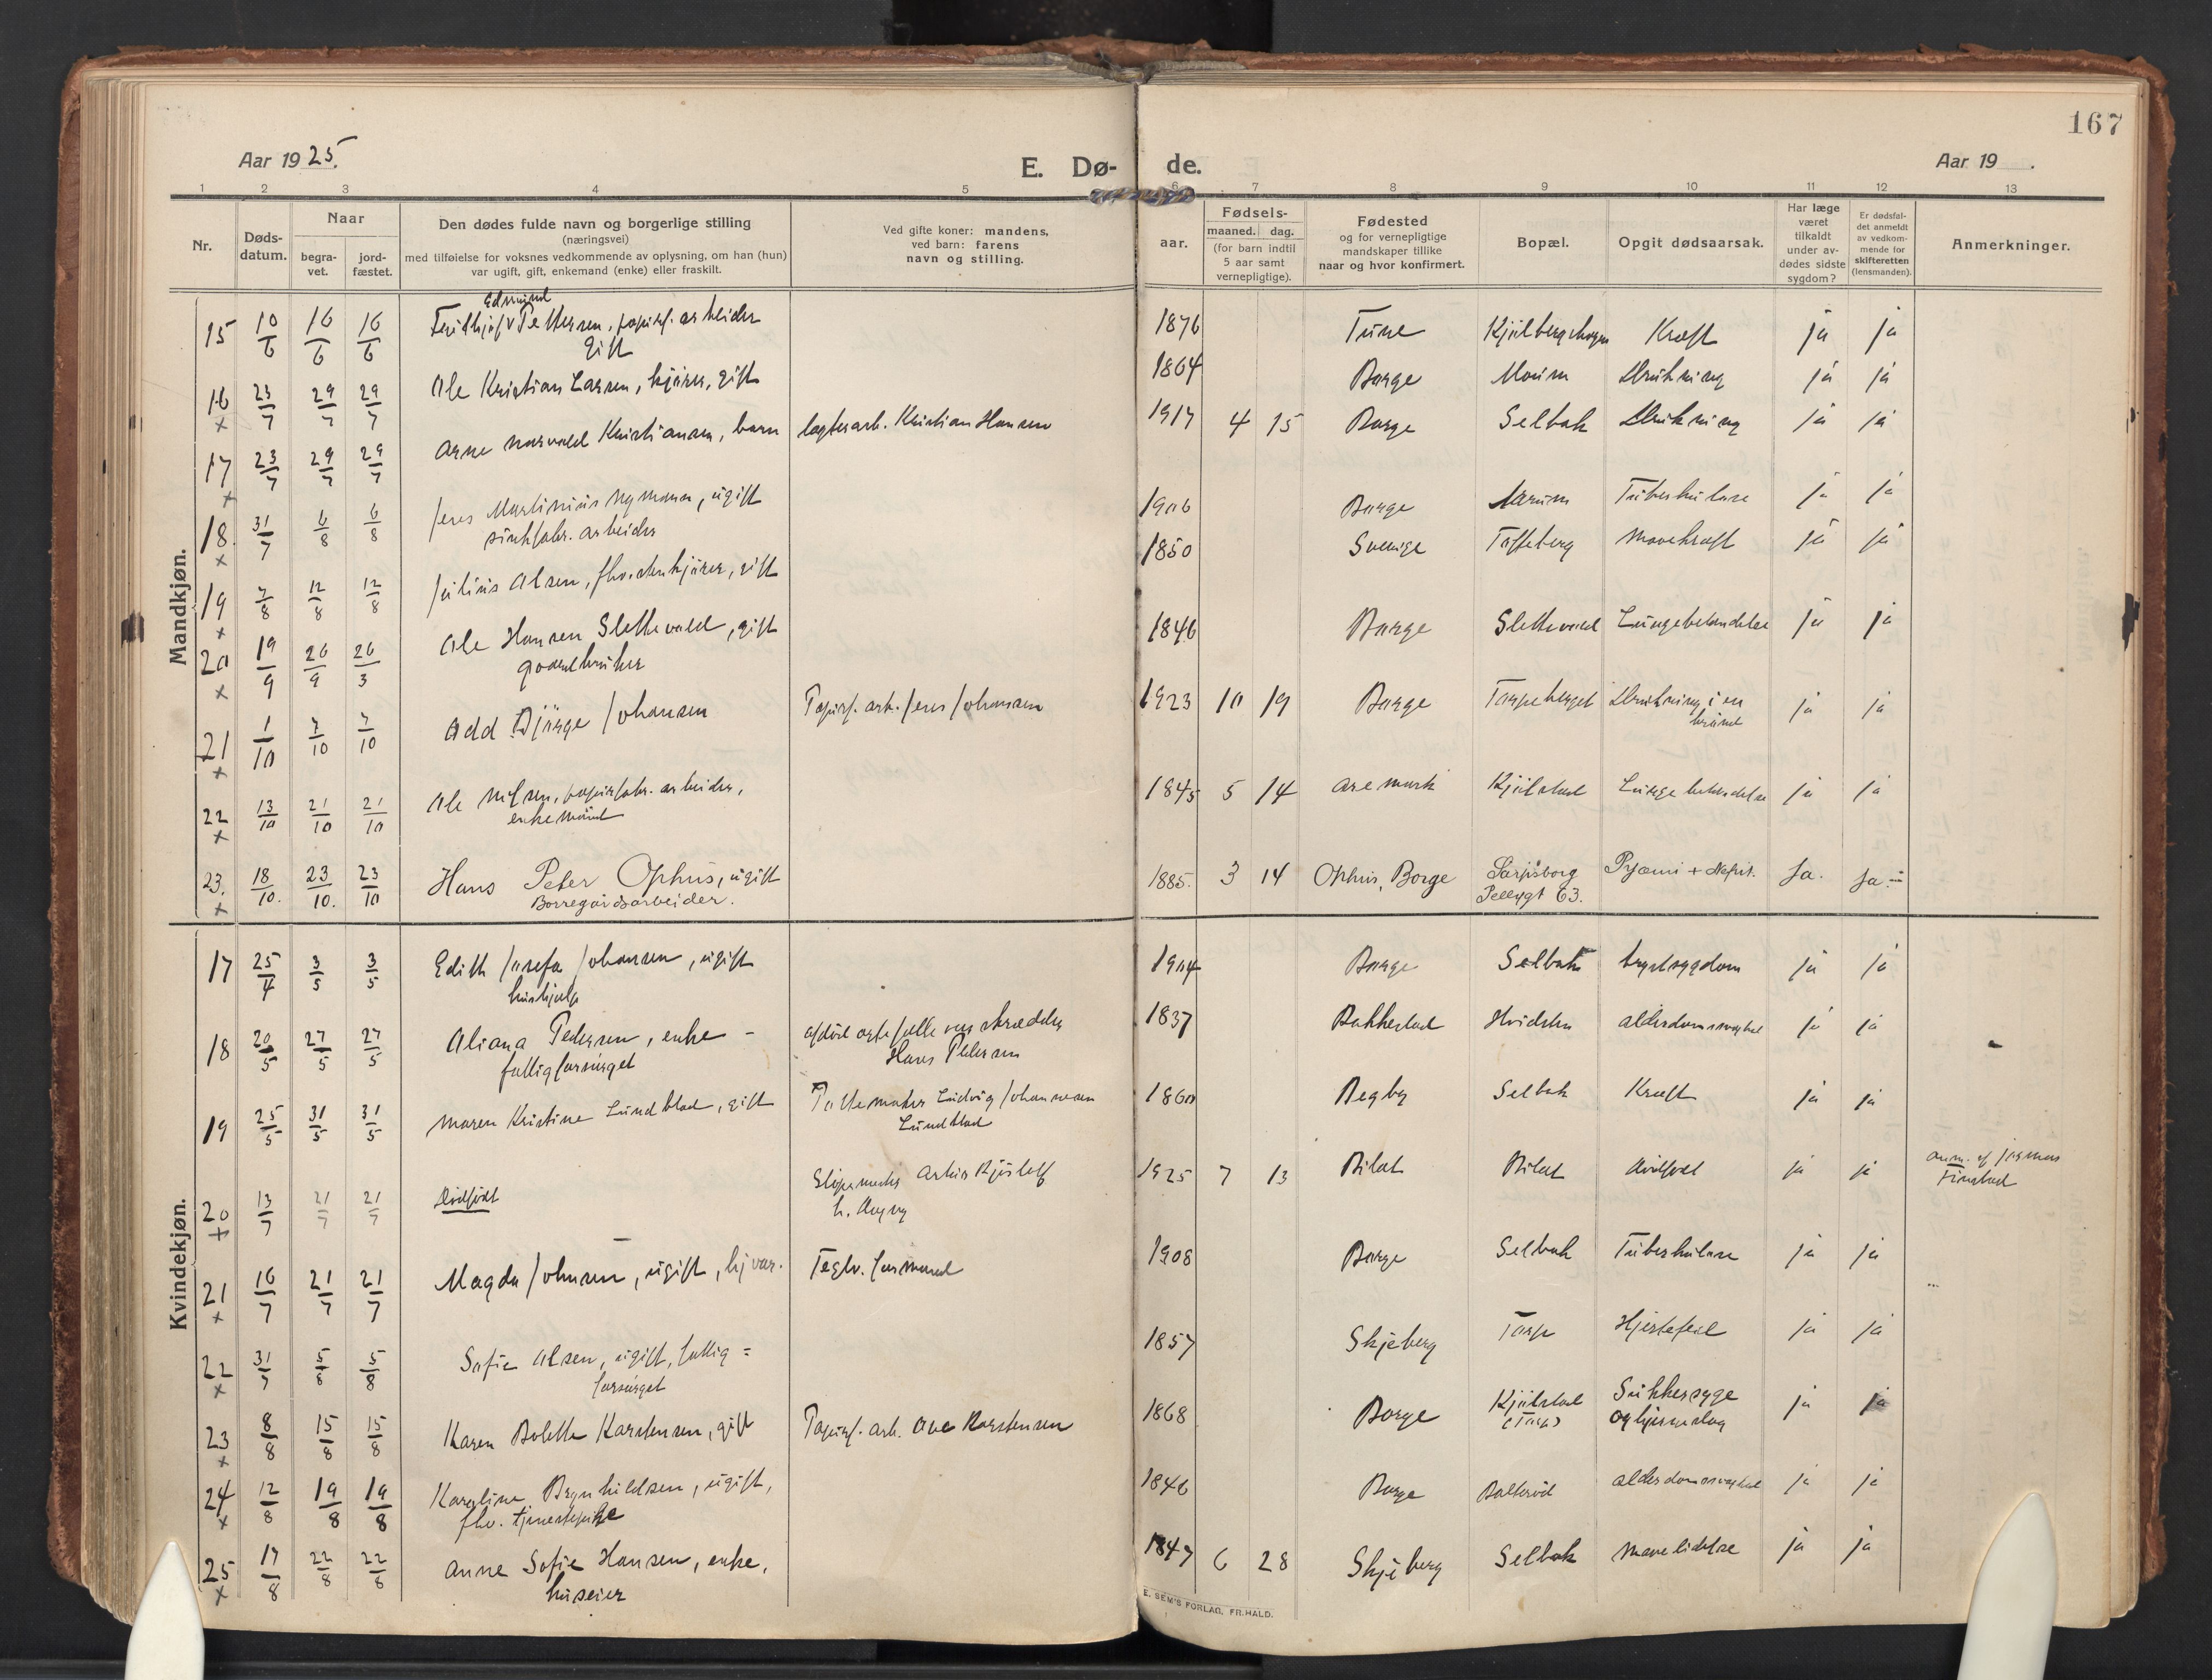 167
Aar 1925.
E. Dø-
de.
Aar 19 .
1 2 3 4 5 6 7 8 9 10 11 12 13
Nr.
Døds-
datum.
Naar
begra-
vet.
jord-
fæstet.
Den dødes fulde navn og borgerlige stilling
(næringsvei)
med tilføielse for voksnes vedkommende av oplysning, om han (hun)
var ugift, gift, enkemand (enke) eller fraskilt.
Ved gifte koner: mandens,
ved barn: farens
navn og stilling.
Fødsels-
aar.
maaned. dag.
(for barn indtil
5 aar samt
vernepligtige).
Fødested
og for vernepligtige
mandskaper tillike
naar og hvor konfirmert.
Bopæl.
Opgit dødsaarsak.
Har læge
været
tilkaldt
under av-
dødes sidste
sygdom?
Er dødsfal-
det anmeldt
av vedkom-
mende for
skifteretten
(lensmanden).
Anmerkninger.
Mandkjøn.
Edmund
15 10/6 16/6 16/6 Frithjof Pettersen, papirf. arbeider 1876 Tune Kræft ja ja
gift
16 23/7 29/7 29/7 Ole Kristian Larsen, kjører, gift 1864 Borge Moum Drukning ja ja
x
17 23/7 29/7 29/7 Arne Norvald Kristiansen, barn Kristian Hansen 1917 4 15 Borge Selbak Drukning ja ja
x
18. 31/7 6/8 6/8 Jens Martinius Nymann, ugift 1906 Borge Tuberkulose ja ja
sinkfabr. arbeider
x
19 7/8 12/8 12/8 Julius Olsen, fhv. stenkjører, gift 1850 Sverige Tofteberg Mavekræft ja ja
x
20 19/9 26/9 26/3 Ole Hansen Slettevold, gift 1846 Borge Slettevold Lungebetændelse ja ja
gaardbruker
x
21 1/10 7/10 7/10 Odd Bjørge Johansen Papirf. arb. Jens Johansen 1923 10 19 Borge Torpeberget Drukning i en ja ja
brønd
x
22 13/10 21/10 21/10 Ole Nilsen, papirfabr. arbeider, 1845 5 14 Aremark Kjølstad Lungebetændelse ja ja
enkemand
x
23. 18/10. 23/10. 23/10 Hans Peter Ophus, ugift 1885. 3 14 Ophus, Borge Sarpsborg Pyæmi + Nefrit. Ja. Ja.
Borregårdsarbeider. Pellygt 63.
x
Kvindekjøn.
17 25/4 3/5 3/5 Edith Josefa Johansen, ugift 1904 Borge Selbak brystsygdom ja ja
hushjælp
18 20/5 27/5 27/5 Oliana Pedersen, enke - skrædder 1837 Bakkestad Hvidsten alderdomssvaghed ja ja
fattigforsørget Hans Pedersen
19 25/5 31/5 31/5 Maren Kristine Lundblad, gift Pottemaker Ludvig Johannesen 1860 Begby Selbak Kræft ja ja
Lundblad
20 13/7 21/7 21/7 Dødfødt 1925 7 13 dødfødt ja ja
x
21 16/7 21/7 21/7 Magda Johnsen, ugift, hjvær. Teglv. formand 1908 Borge Selbak Tuberkulose ja ja
x
22 31/7 5/8 5/8 Sofie Olsen, ugift, fattig = 1857 Skjeberg Torp Hjertefeil ja ja
forsørget
x
23 8/8 15/8 15/8 Karen Bolette Karstensen, gift Papirf. arb. Ove Karstensen 1868 Borge Kjølstad Sukkersyge ja ja
(Torp) og hjerneslag
x
24 12/8 19/8 19/8 Karoline Brynhildsen, ugift, 1846 Borge alderdomssvaghed ja ja
fhv. tjenestepike
x
25 17/8 22/8 22/8 Anne Sofie Hansen, enke, 1847 6 28 Skjeberg Selbak Mavelidelse ja ja
huseier
x
E. SEM'S FORLAG, FR.HALD.